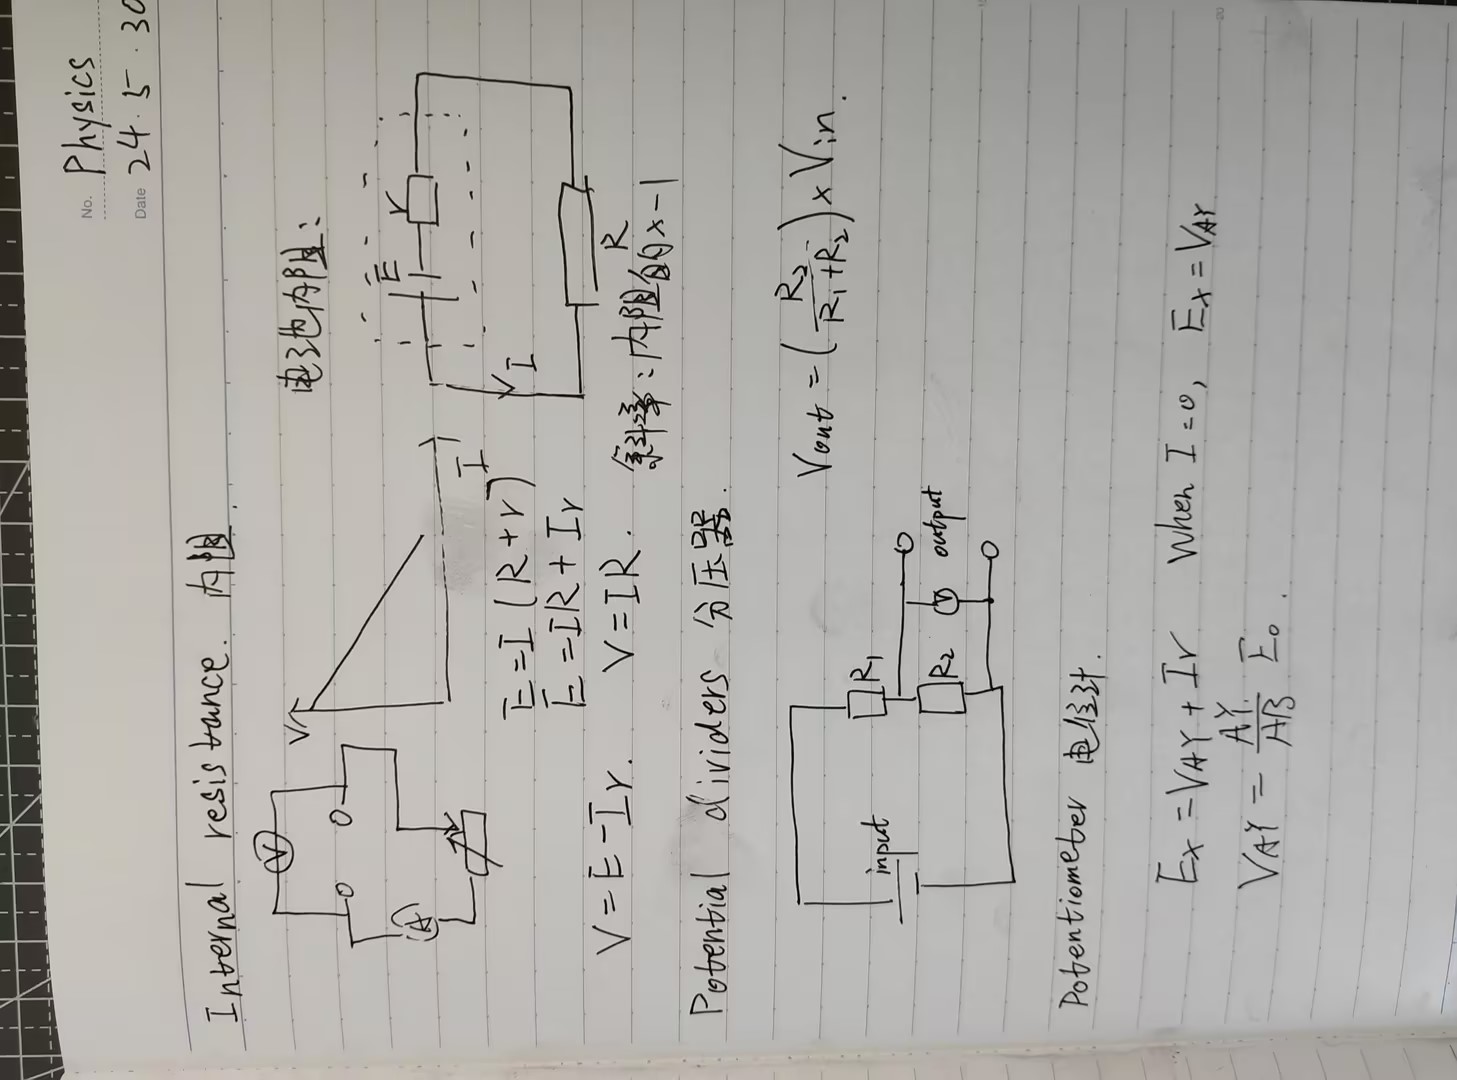 No. Physics
Date 24.5.30
Internal resistance. 内阻.
V
A
V
I
电池内阻:
E
r
I
R
E=I(R+r)
E=IR+Ir
V=E-Ir. V=IR.
斜率:内阻的×-1
Potential dividers 分压器.
input
R₁
R₂
V
output
Vout=(R₂/(R₁+R₂))×Vin.
Potentiometer 电位计.
Ex=VAY+Ir When I=0, Ex=VAY
VAY=AY/AB E₀.